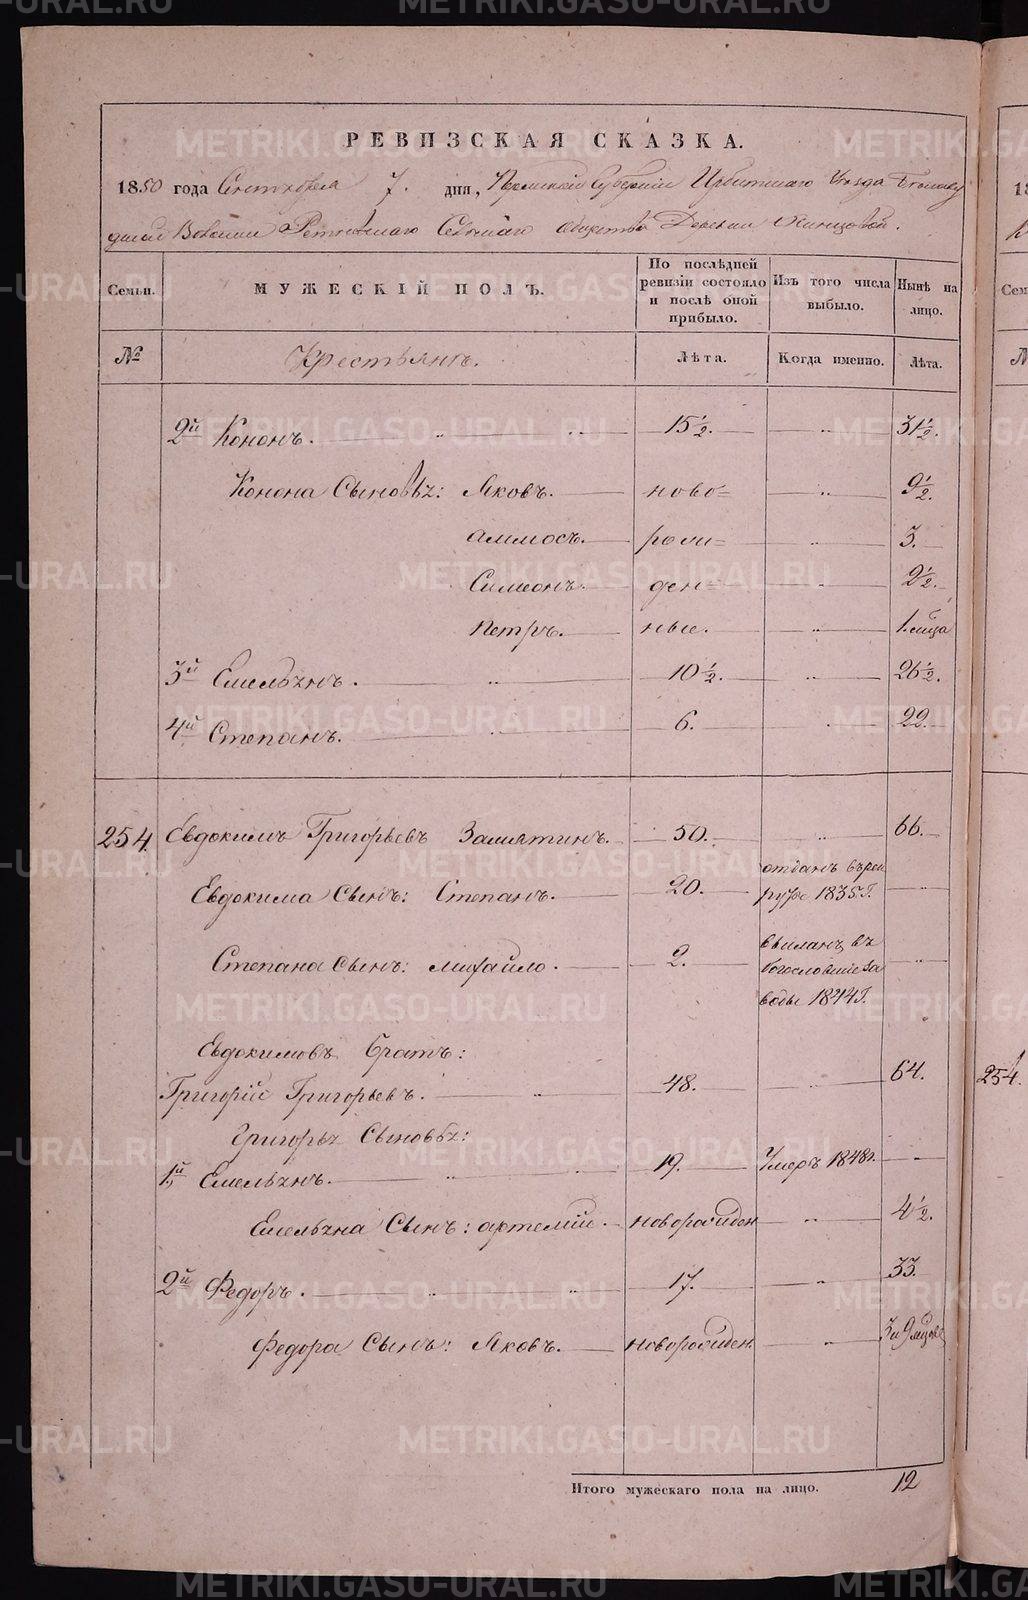 РЕВИЗСКАЯ СКАЗКА.
1850 года Сентября 7. дня, Пермской Губернии Ирбитскаго Уезда
Волости Сельскаго Общества Деревни
Семьи. МУЖЕСКІЙ ПОЛЪ. По послѣдней ревизіи состояло и послѣ оной прибыло. Изъ того числа выбыло. Нынѣ на лицо.
№ Крестьянъ. Лѣта. Когда именно. Лѣта.
2й Кононъ. 15½. 31½.
Конона Сыновья: Яковъ. ново= 9½.
Аммосъ. рожи= 3.
Симеонъ. ден= 2½.
Петръ. ные. 1. м̃ца
3й Емельянъ. 10½. 26½.
4й Степанъ. 6. 22.
254. Евдокимъ Григорьевъ Замятинъ. 50. 66.
Евдокима Сынъ: Степанъ. 20. отданъ въ рек
руты 1835 г.
Степана Сынъ: Михайло. 2. высланъ въ
богословскіе за
воды 1844 г.
Евдокимовъ братъ:
Григорій Григорьевъ. 48. 64.
Григорья Сыновья:
1й Емельянъ. 19. Умеръ 1848 г.
Емельяна Сынъ: Артемій. новорожден 4½.
2й Федоръ. 17. 33.
Федора Сынъ: Яковъ. новорожден. 3 и 9 мцовъ
Итого мужескаго пола на лицо. 12
254.
METRIKI.GASO-URAL.RU